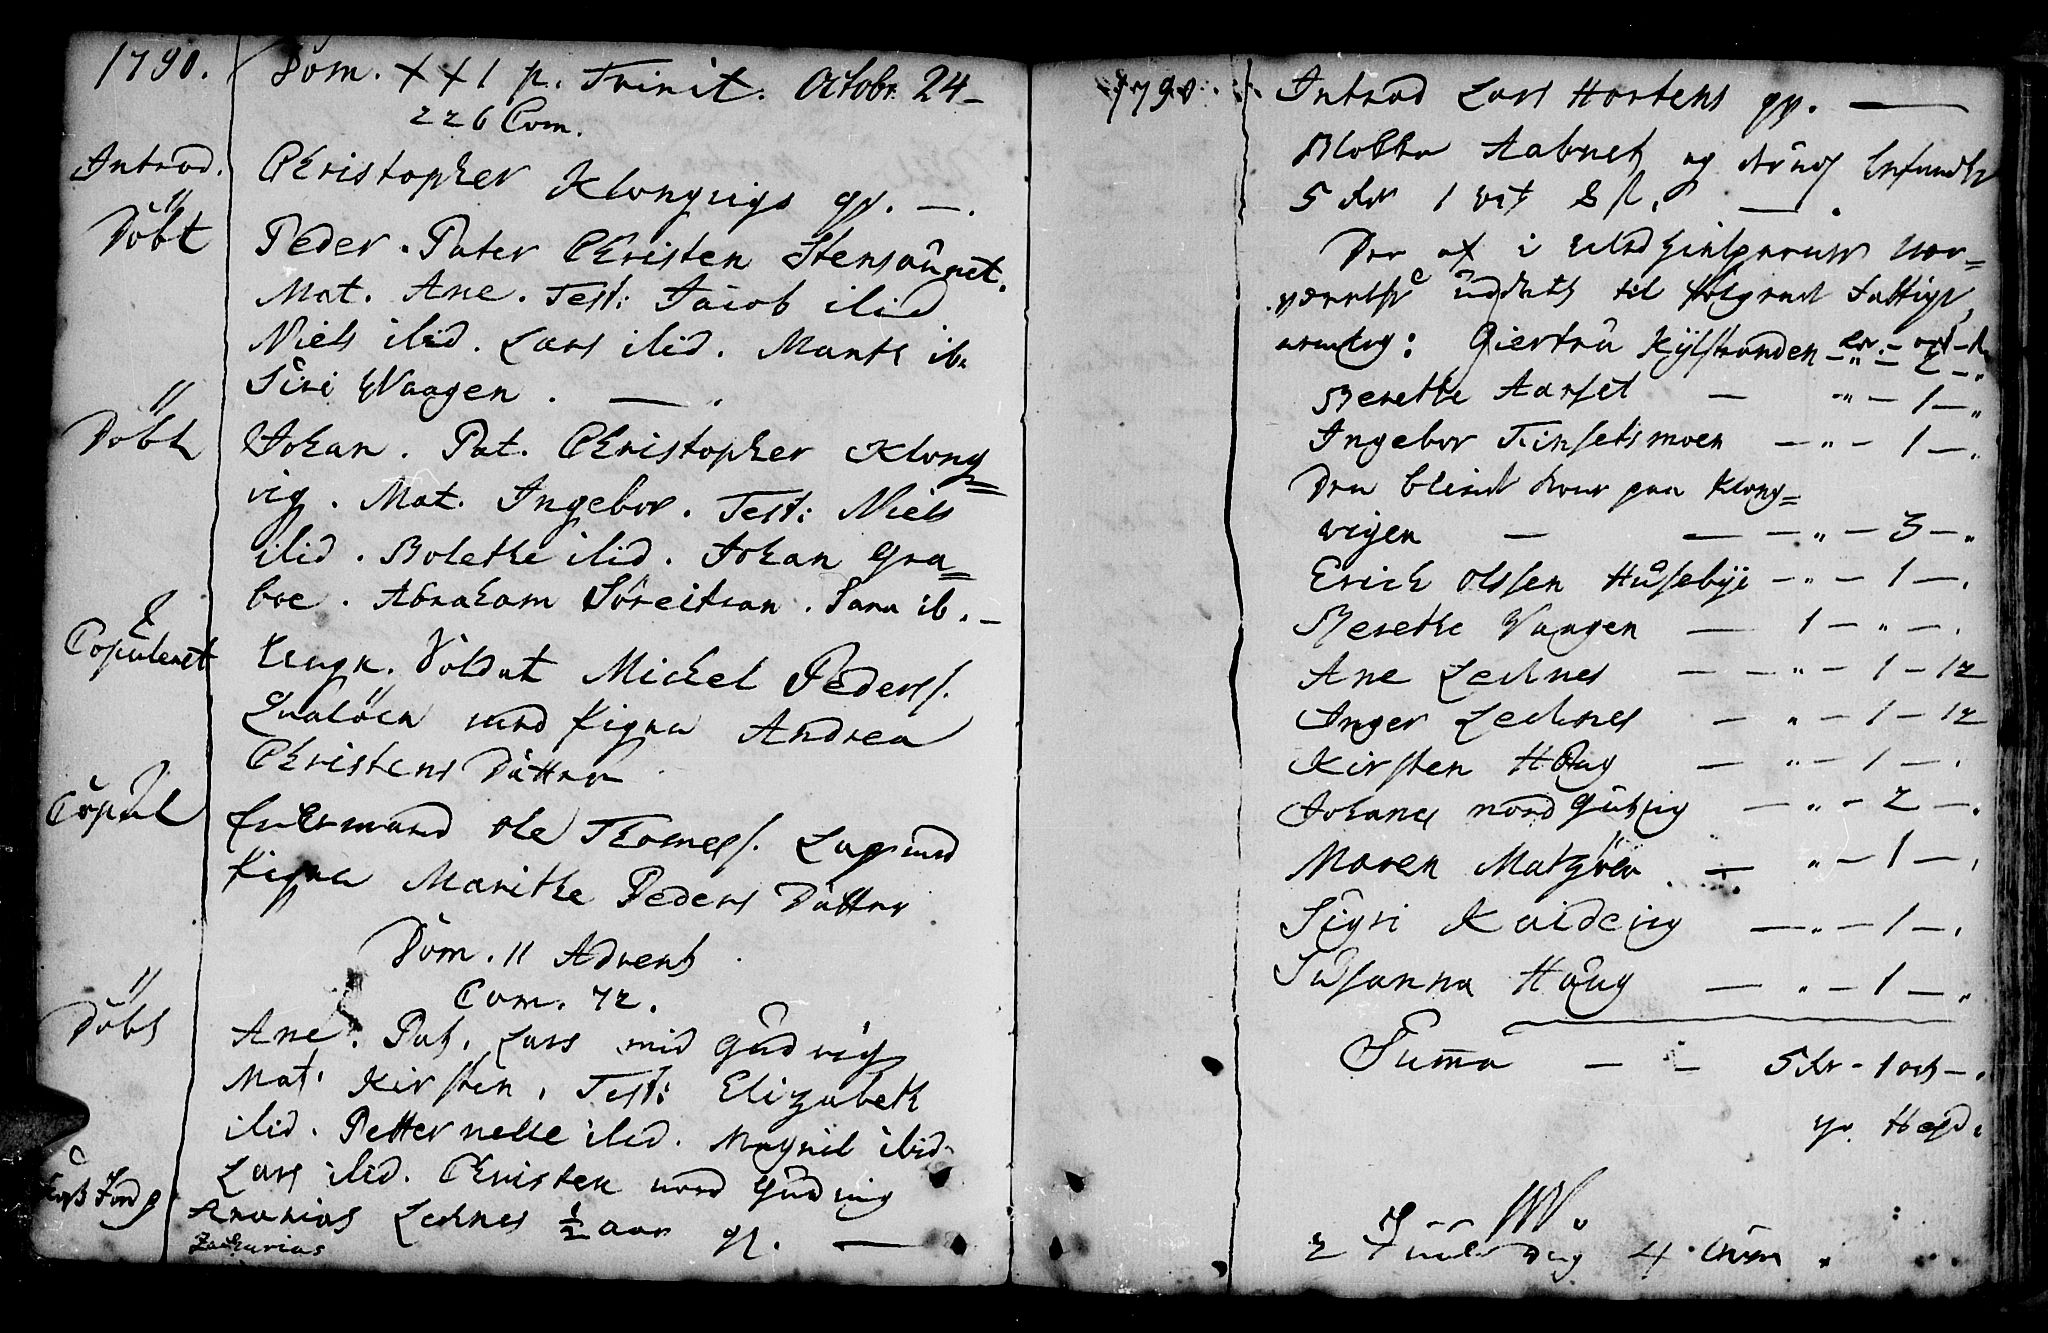 1790. Dom. XXI p. Trinit. Octobr. 24 –
226 Com.
Introd. Christopher Klongvigs qv. — .
Döbt Peder. Pater Christen Stensøunet.
Mat. Ane. Test: Jacob ibid
Niels ibid. Lars ibid. Marith ib.
Siri Waagen. — .
Döbt Johan. Pat. Christopher Klong=
vig. Mat. Ingebor. Test: Niels
ibid. Bolethe ibid. Johan Gra=
boe. Abraham. Sara ib. –
Copuleret Ungk. Soldat Michel Peders.
med Pigen Andrea
Christens Datter
Copul Enkemand Ole Thomes. Lag med
Pigen Marithe Peders Datter
Dom. II Advent
Com. 72.
Döbt Ane. Pat. Lars mid Gudvig
Mat. Kirsten. Test: Elizabeth
ibid. Petternelle ibid. Magnil ibid.
Lars ibid. Christen nord Gudvig
Ananias Lechnes ½ aar gl. —
Zacharias
1790. Introd Lars Hortens qv. —
Blokken Aabnet og
5 dr 1 ort 8 s. — .
Der af i
til Fattige,
nemlig: Giertru Kylstranden dr. – ort – s
" – 2 – "
Berethe Aarset — " – 1 – "
Ingebor Tinsetsmoen – " – 1 – .
Den blinde paa Klong=
vigen — — " – 3 – "
Erich Olssen Husebye – " – 1 – .
Berethe Vaagen — 1 – " – .
Ane Lechnes — " – 1 – 12
Inger Lechnes — " – 1 – 12
Kirsten Haug — " – 1 – .
Johanes nord Gudvig — " – 2 – .
Maren — " – 1 – .
Sigri — " – 1 – .
Susanna Haug — " – 1 – "
Summa — – 5 dr – 1 ort – .
2 Juule Dag 4 Com